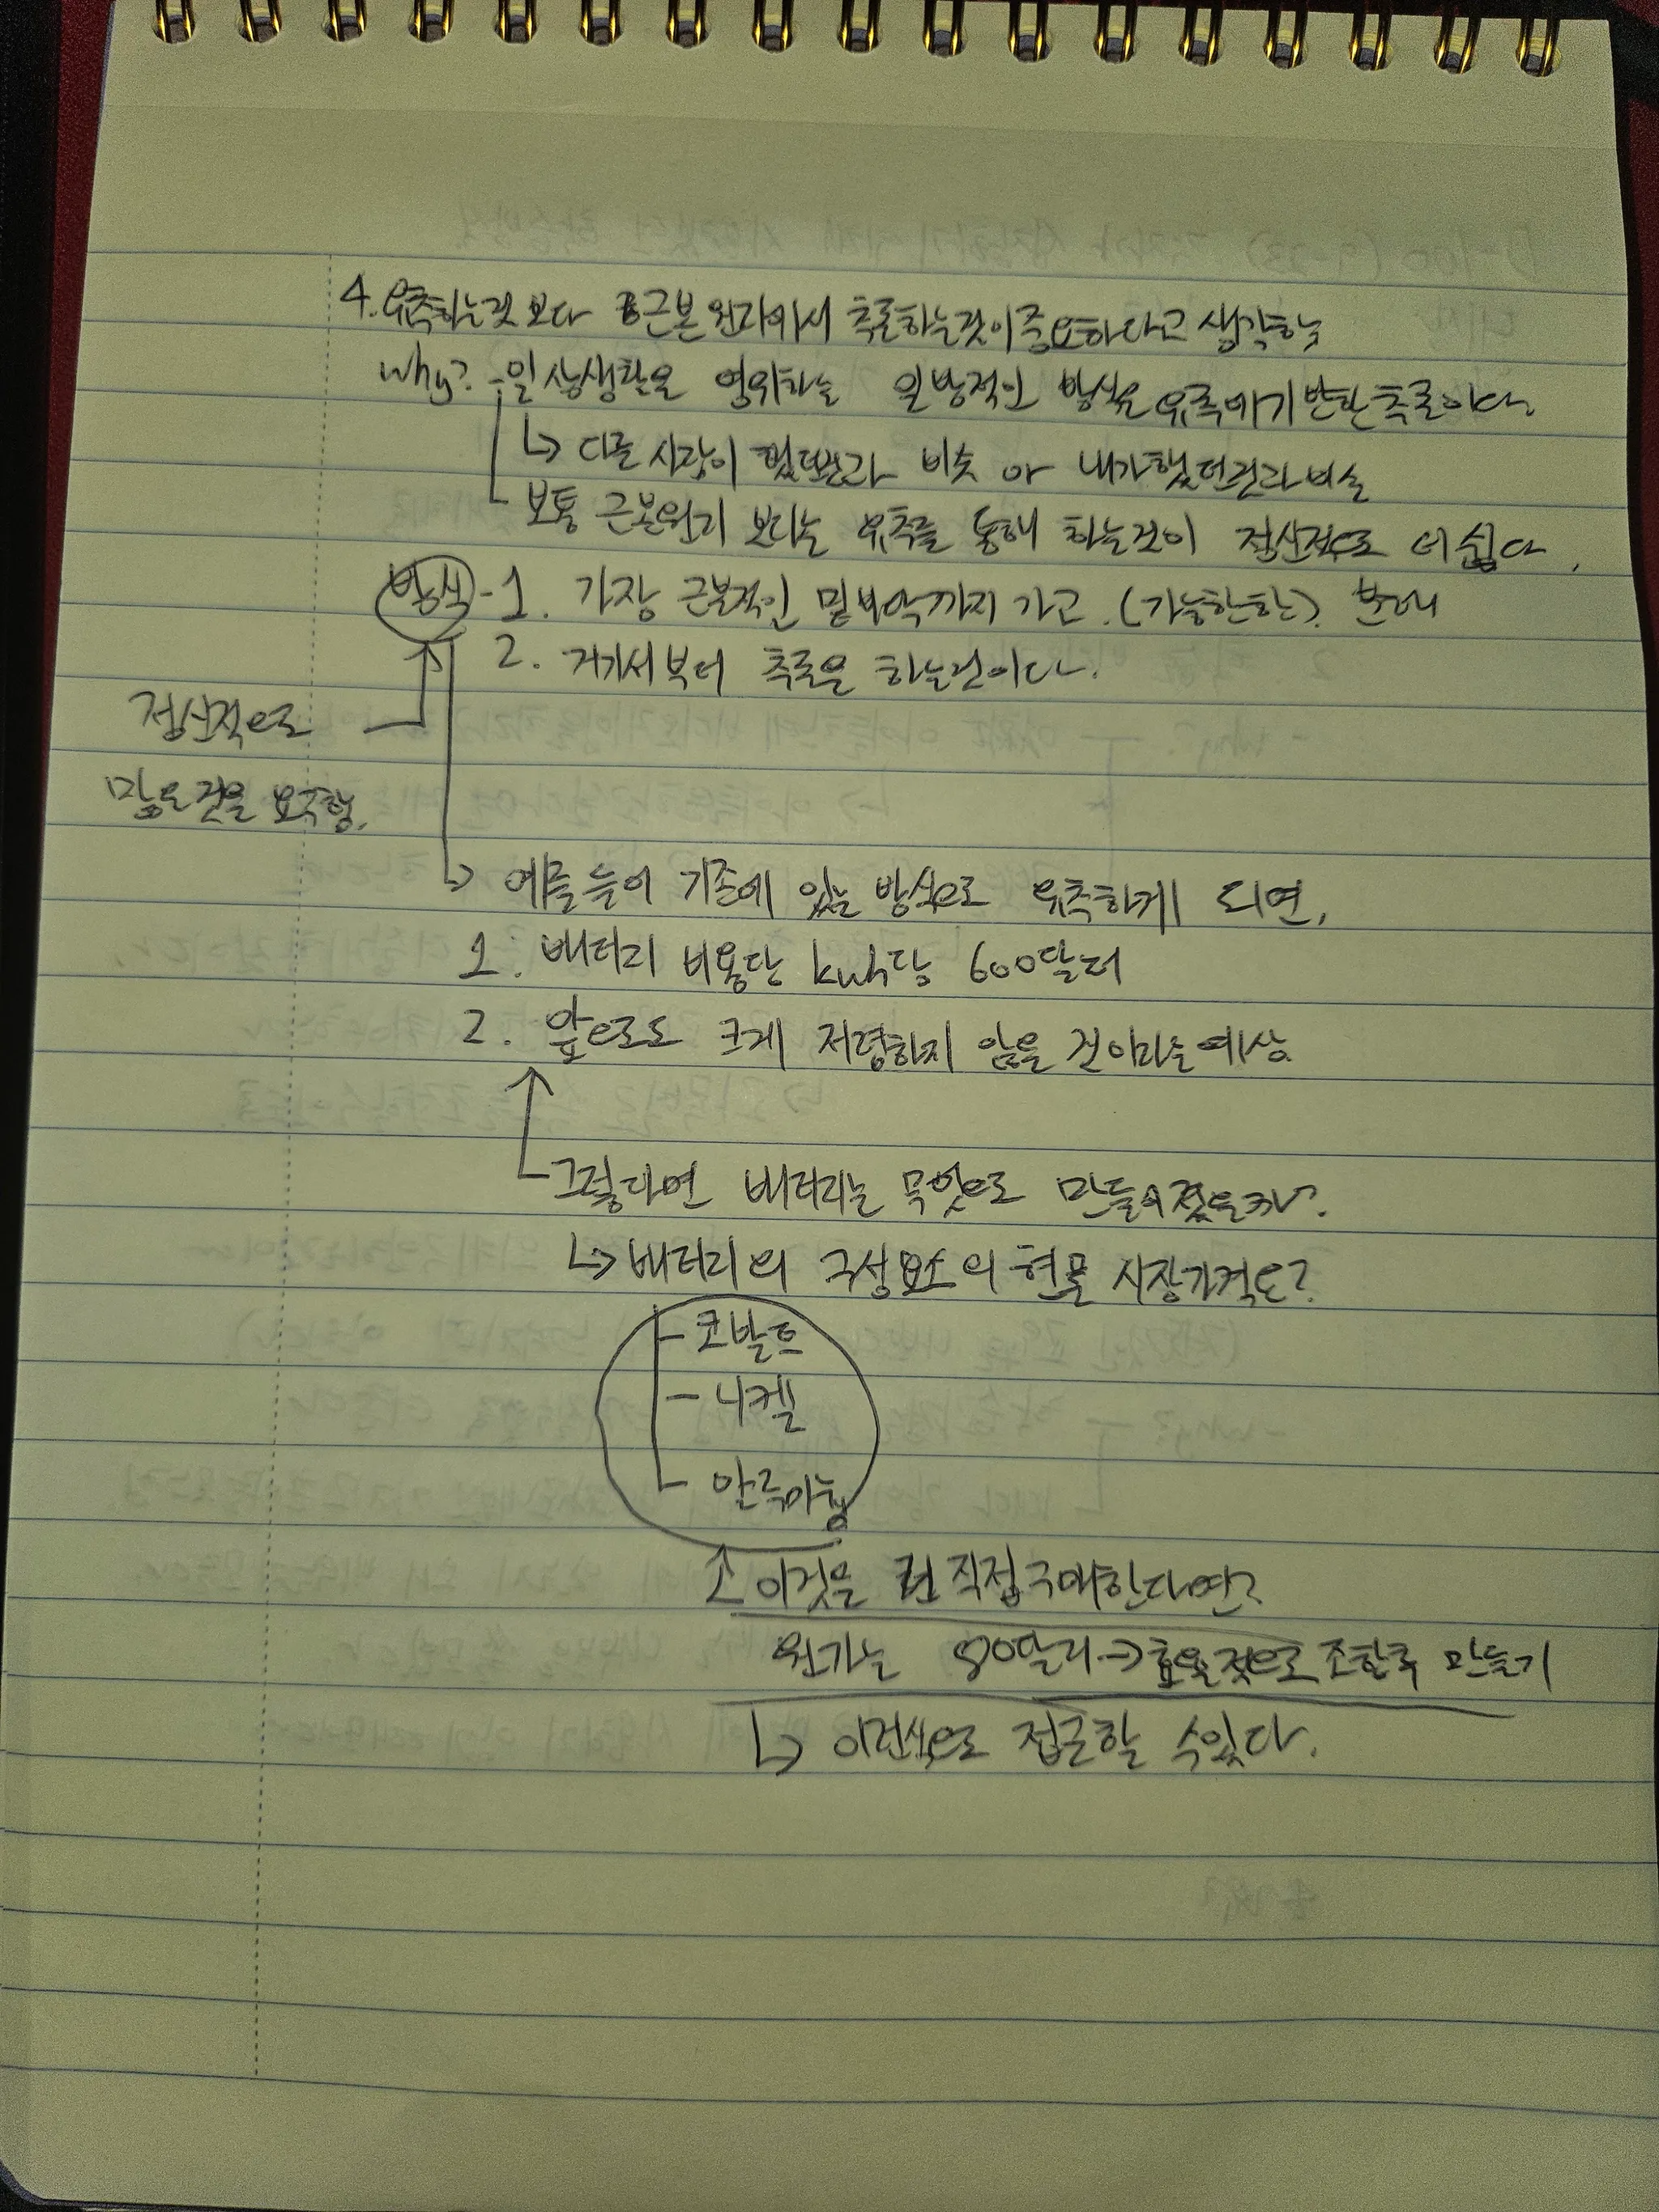 4. 유추하는것 보다 근본 원리에서 추론하는것이 중요하다고 생각하는
why? - 일상생활을 영위하는 일반적인 방식은 유추에 기반한 추론이다.
↳ 다른 사람이 했던것과 비슷 or 내가 했던것과 비슷
보통 근본원리 보다는 유추를 통해 하는것이 정신적으로 더 쉽다.
방식 - 1. 가장 근본적인 밑바닥까지 가고 (가능한한)
2. 거기서부터 추론을 하는것이다.
정신적으로
많은 것을 요구함.
↳ 예를 들어 기존에 있는 방식으로 유추하게 되면,
1. 배터리 비용단 kwh당 600달러
2. 앞으로도 크게 저렴하지 않을 것이라는 예상
그렇다면 배터리는 무엇으로 만들어졌을까?
↳ 배터리의 구성요소의 현물 시장가격은?
- 코발트
- 니켈
- 알루미늄
이것을 직접 구매한다면?
원가는 80달러 → 효율적으로 조합후 만들기
↳ 이런식으로 접근할 수 있다.